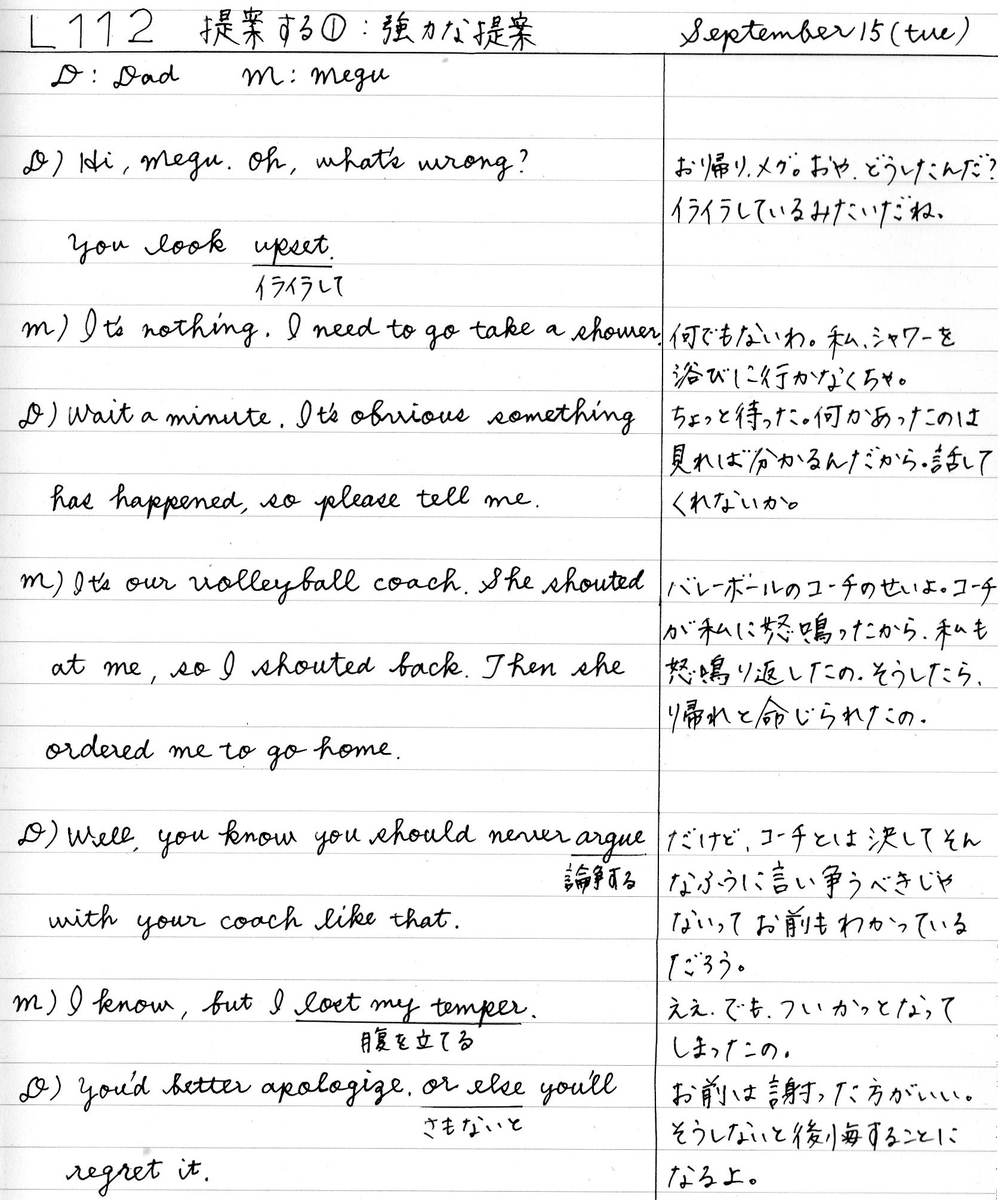 L112 提案する①:強力な提案 September 15 (tue)
D: Dad M: Megu
D) Hi, Megu. Oh, what's wrong?
お帰り、メグ。おや、どうしたんだ?
イライラしているみたいだね。
You look upset.
イライラして
M) It's nothing. I need to go take a shower.
何でもないわ。私、シャワーを
浴びに行かなくちゃ。
D) Wait a minute. It's obvious something
ちょっと待った。何かあったのは
見れば分かるんだから。話して
has happened, so please tell me.
くれないか。
M) It's our volleyball coach. She shouted
バレーボールのコーチのせいよ。コーチ
が私に怒鳴ったから、私も
at me, so I shouted back. Then she
怒鳴り返したの。そうしたら、
帰れと命じられたの。
ordered me to go home.
D) Well, you know you should never argue
だけど、コーチとは決してそん
論争する
なふうに言い争うべきじゃ
with your coach like that.
ないってお前もわかっている
だろう。
M) I know, but I lost my temper.
ええ、でも、ついかっとなって
腹を立てる
しまったの。
D) You'd better apologize, or else you'll
お前は謝った方がいい。
さもないと
そうしないと後悔することに
regret it.
なるよ。